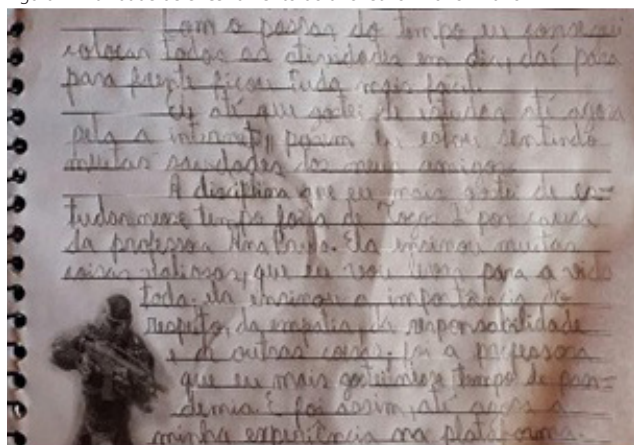 Com o passar do tempo eu consegui
colocar todas as atividades em dia, daí para
para frente ficou tudo mais fácil.
Eu até que gostei de estudar até agora
pela a internet, porém eu estou sentindo
muitas saudades dos meus amigos.
A disciplina que eu mais gostei de es-
tudar nesse tempo foi a de É por causa
da professora Ana Ela ensinou muitas
coisas valiosas, que eu vou para a vida
toda. ela ensinou a importância do
respeito, da empatia, da responsabilidade
e de outras coisas. foi a professora
que eu mais gostei nesse tempo de pan-
demia. E foi assim, até agora a
minha experiência na plataforma.